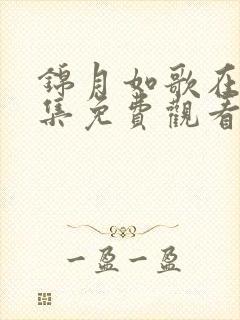 錦月如歌在
集免費觀看
一盈一盈